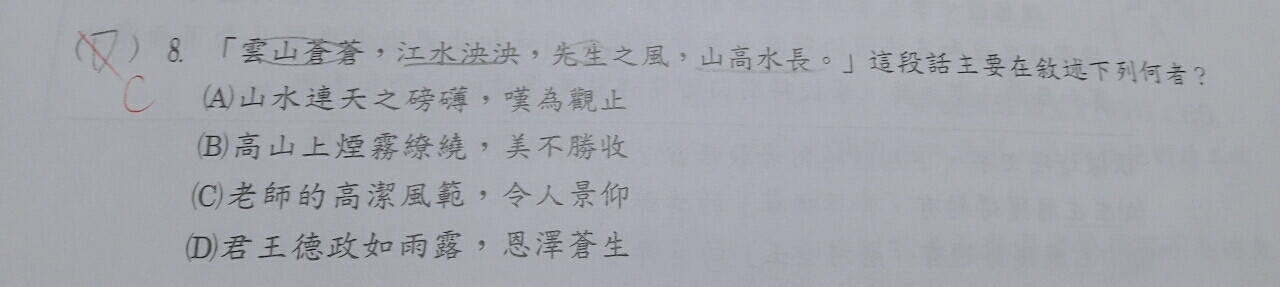 (D) 8. 「雲山蒼蒼，江水泱泱，先生之風，山高水長。」這段話主要在敘述下列何者？
C
(A)山水連天之磅礡，嘆為觀止
(B)高山上煙霧繚繞，美不勝收
(C)老師的高潔風範，令人景仰
(D)君王德政如雨露，恩澤蒼生